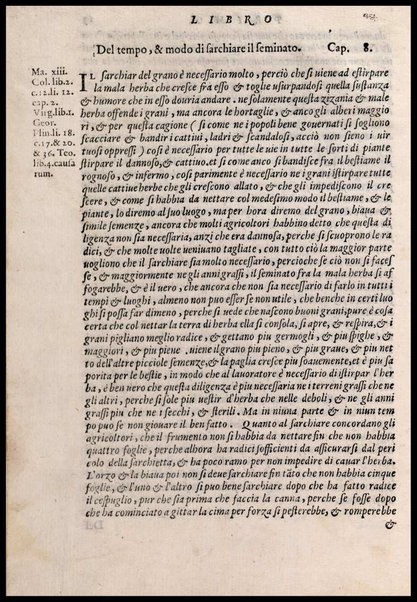 LIBRO
Del tempo, & modo di sarchiare il seminato. Cap. 8.
Ma. xiii.
Col. lib. 2.
c. 12. li. 12.
cap. 2.
Virg. lib. 1.
Geor.
Plin. li. 18.
c. 17. & 20.
& 36. Teo.
lib. 4. causa
rum.
IL sarchiar del grano è necessario molto, perciò che si uiene ad estirpare
la mala herba che cresce fra esso & toglie usurpandosi quella sustanza
& humore che in esso douria andare. ne solamente questa zizania & male
herbe offende i grani, ma ancora le hortaglie, & ancogli alberi maggio
ri, & per questa cagione (si come ne i popoli bene gouernati si sogliono
scacciare & bandir i cattiui, ladri & scandalosi, acciò non sieno i uir
tuosi oppressi) così è necessario per tutte le uie in tutte le sorti di piante
stirpare il dannoso, & cattiuo. et si come anco si bandisce fra il bestiame il
rognoso, & infermo, così parimente è necessario ne i grani istirpare tutte
quelle cattiue herbe che gli crescono allato, & che gli impediscono il cre
scere, & come si habbia da nettare col medesimo modo il bestiame, & le
piante, lo diremo al suo luogo, ma per hora diremo del grano, biaua &
simile semenze, ancora che molti agricoltori habbino detto che questa di
ligenza non sia necessaria, anzi che era dannosa, perche si scuoprono le ra
dici, & che molte uolte ueniuano tagliate, con tutto ciò la maggior parte
uogliono che il sarchiare sia molto necessario, percioche se ciò non si faces
se, & maggiormente negli anni grassi, il seminato fra la mala herba si af
fogarebbe, & è il uero, che ancora che non sia necessario di farlo in tutti i
tempi & luoghi, almeno non puo esser se non utile, che benche in certi luo
ghi si possa far dimeno, perche si uede che nascono buoni grani, pure è cosa
certa che col nettar la terra di herba ella si consola, si apre, & respira, & i
grani pigliano meglio radice, & gettano piu germogli, & piu spighe, &
maggiori, & piu piene. uiene il grano piu pieno, & piu graue, & piu net
to dell'altre picciole semenze, & la paglia cresce piu soauemente, et è piu sa
porita per le bestie, in modo che al lauoratore è necessario di istirpar l'her
ba, è ben uero che questa diligenza è piu necessaria ne i terreni grassi che ne
gli altri, perche si sole piu uestir d'herba che nelle deboli, & ne gli anni
grassi piu che ne i secchi, & sterili. Ma in niuna parte & in niun tem
po puo se non giouare il ben fatto. Quanto al sarchiare concordano gli
agricoltori, che il frumento non si habbia da nettare fin che non habbia
quattro foglie, perche alhora ha radici sofficienti da assicurarsi dal peri
colo della sarchietta, & ha poco ramo per non impedire di cauar l'herba.
L'orzo & la biaua poi non si deue sarchiare fin tãto che non habbia cinque
foglie, & l'uno & l'altro si puo bene sarchiare dopo che ha fatto radice
il cespuglio, pur che sia prima che faccia la canna, perche se fosse dopo
che ha cominciato a gittar la cima per forza si pesterebbe, & romperebbe
&